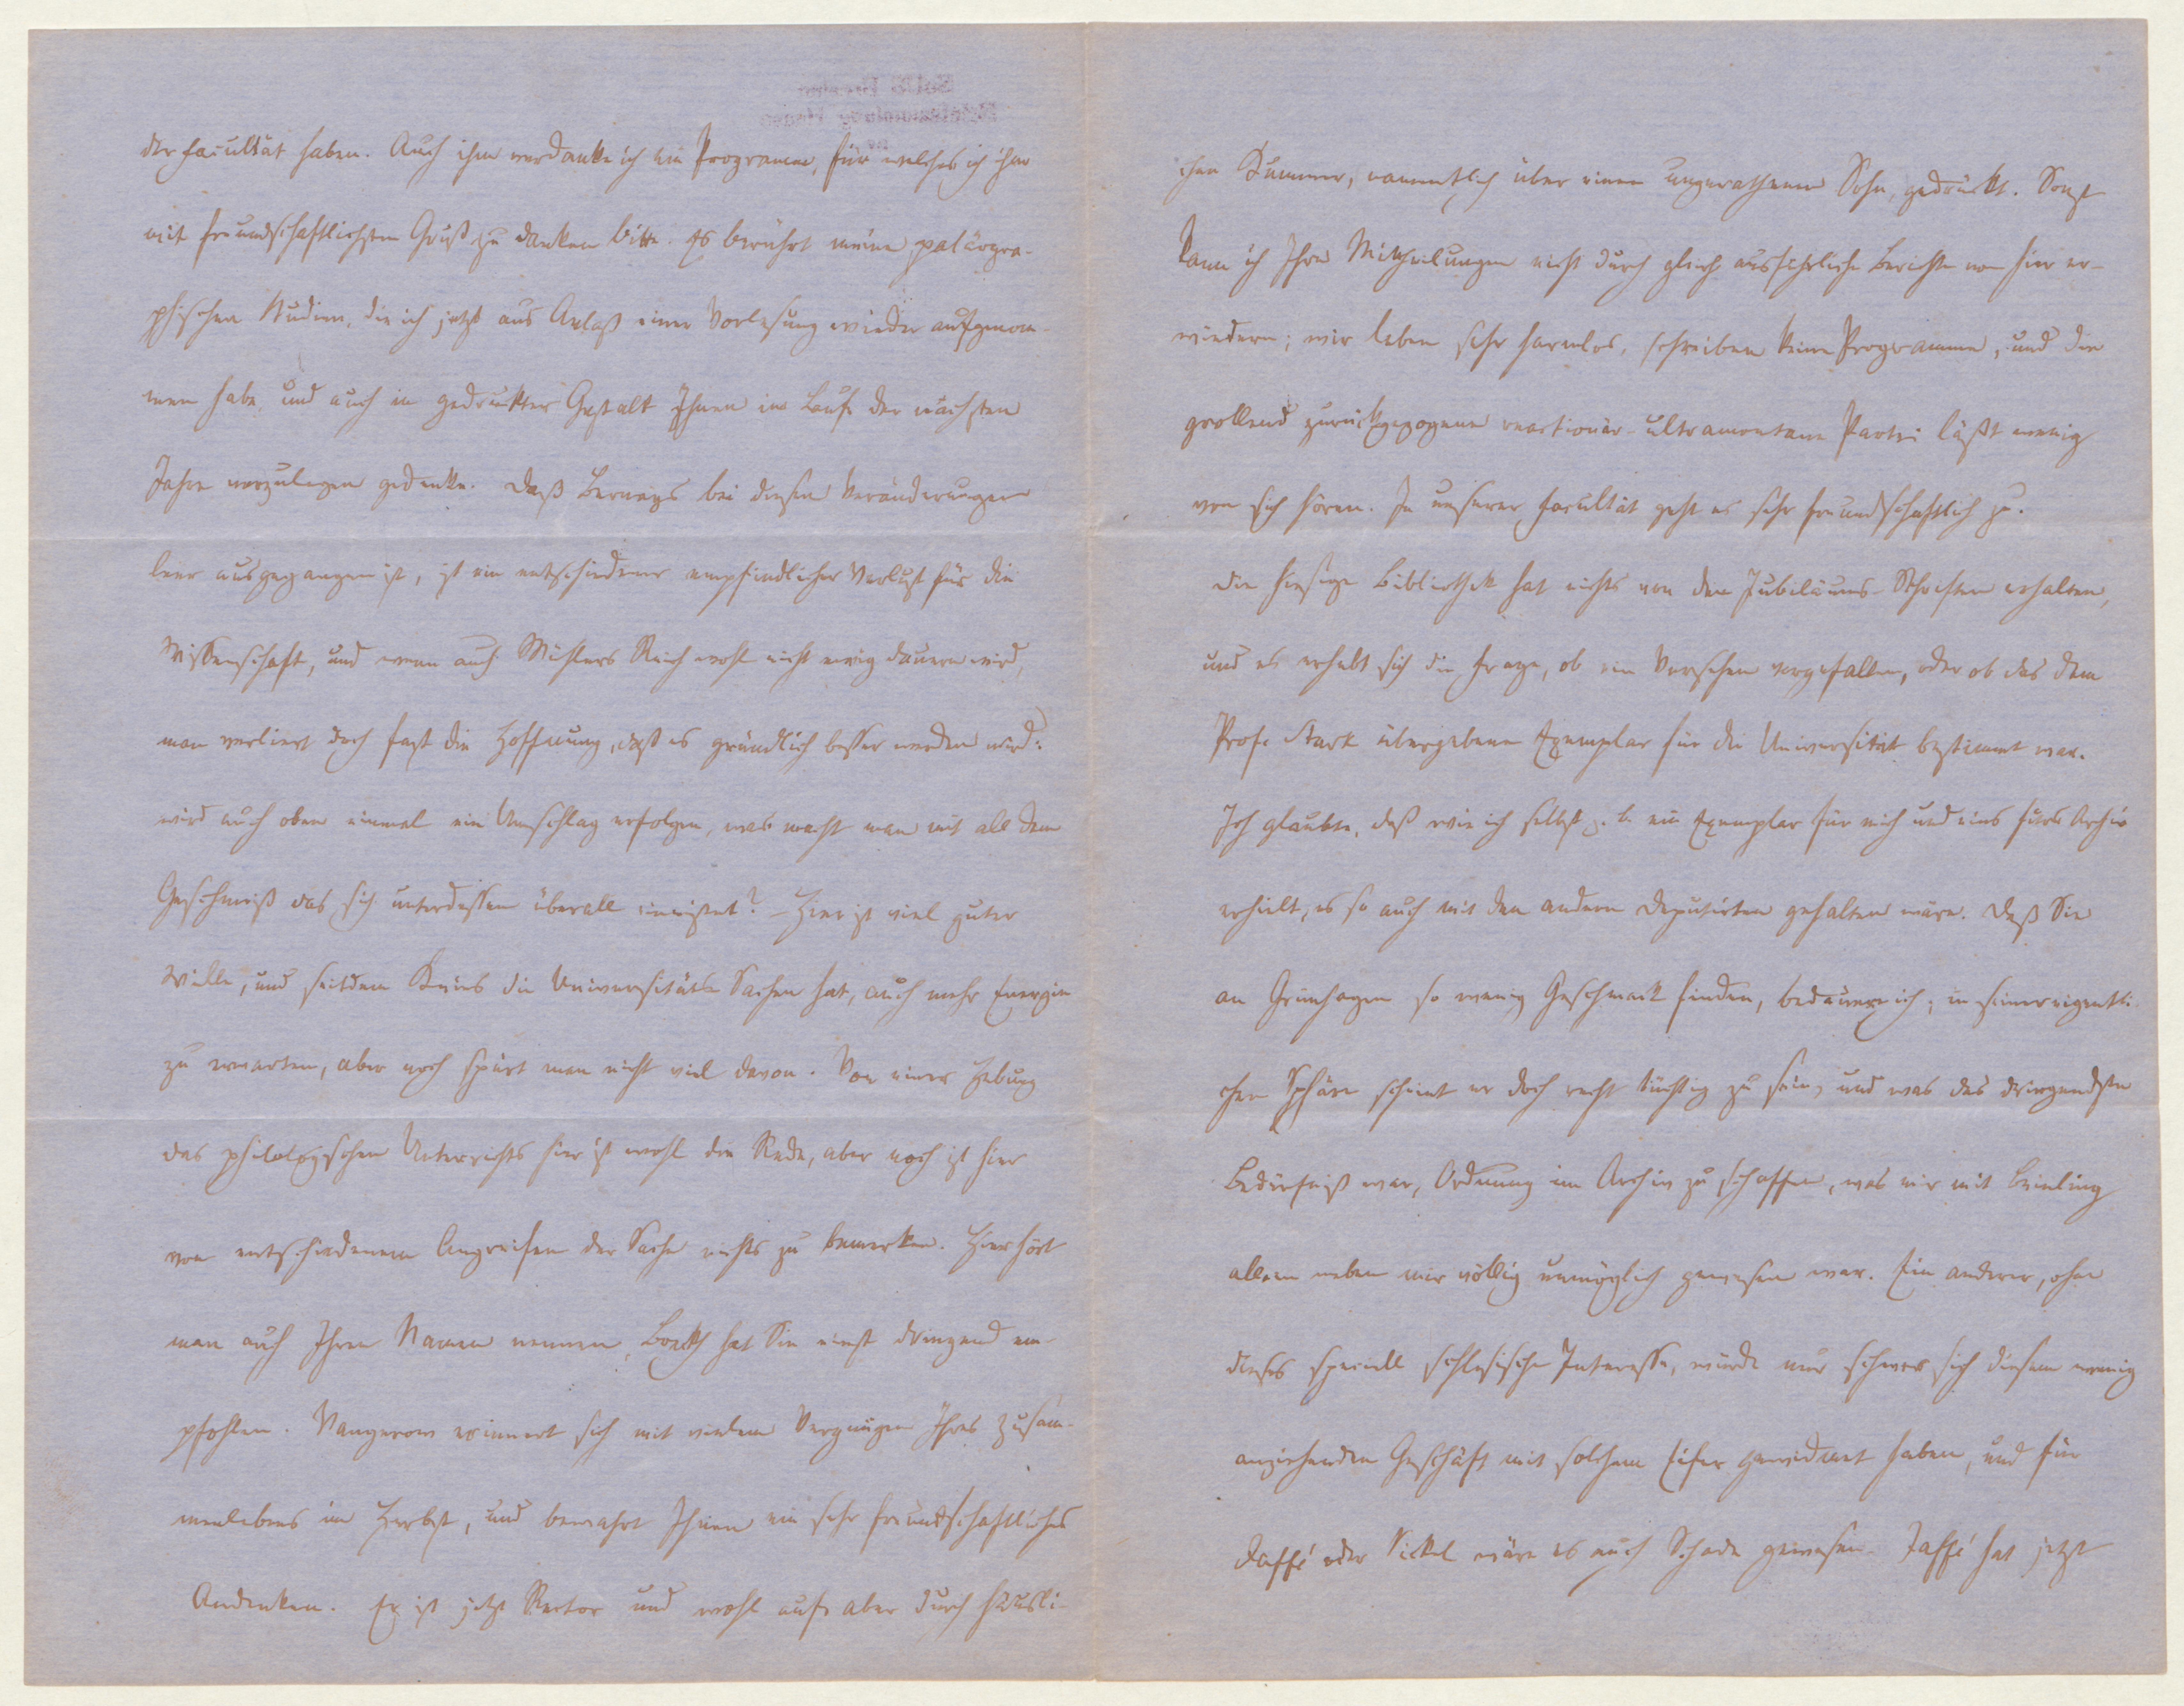 der Facultät haben. Auch ihm verdanke ich ein Programm, für welches ich ihm
mit freundschaftlichstem Gruß zu danken bitte. Es berührt meine paläogra-
phischen Studien, die ich jetzt aus Anlaß einer Vorlesung wieder aufgenom-
men habe, und auch in gedruckter Gestalt Ihnen im Lauf der nächsten
Jahre vorzulegen gedenke. Daß Bernays bei diesen Veränderungen
leer ausgegangen ist, ist ein entschiedener empfindlicher Verlust für die
Wissenschaft, und wenn auch Mühlers Reich wohl nicht ewig dauern wird,
man verliert doch fast die Hoffnung, daß es gründlich besser werden wird:
wird auch oben einmal ein Umschlag erfolgen, was macht man mit all dem
Geschmeiß das sich unterdessen überall einnistet? – Hier ist viel guter
Wille, und seitdem Knies die Universitäts-Sachen hat, auch mehr Energie
zu erwarten, aber noch spürt man nicht viel davon. Von einer Hebung
des philologischen Unterrichts hier ist wohl die Rede, aber noch ist hier
von entschiedenem Angreifen der Sache nichts zu bemerken. Hier hört
man auch Ihren Namen nennen, Boeckh hat Sie einst dringend em-
pfohlen. Vangerow erinnert sich mit vielem Vergnügen Ihres Zusam-
menlebens im Herbst, und bewahrt Ihnen ein sehr freundschaftliches
Andenken. Er ist jetzt Rector und wohl auf, aber durch häusli-
chen Kummer, namentlich über einen ungerathenen Sohn, gedrückt. Sonst
kann ich Ihre Mittheilungen nicht durch gleich ausführliche Berichte von hier er-
wiedern; wir leben sehr harmlos, schreiben keine Programme, und die
grollend zurückgezogene reactionär-ultramontane Partei läßt wenig
von sich hören. In unserer Facultät geht es sehr freundschaftlich zu.
Die hiesige Bibliothek hat nichts von den Jubiläums-Schriften erhalten,
und es erhebt sich die Frage, ob ein Versehen vorgefallen, oder ob das dem
Prof. Stark übergebene Exemplar für die Universität bestimmt war.
Ich glaubte, daß wie ich selbst z. b. ein Exemplar für mich und eins fürs Archiv
erhielt, es so auch mit den andern Deputirten gehalten wäre. Daß Sie
an Grünhagen so wenig Geschmack finden, bedauere ich; in seiner eigentli-
chen Sphäre scheint er doch recht tüchtig zu sein, und was das dringendste
Bedürfniß war, Ordnung im Archiv zu schaffen, was mir mit Beinling
allein neben mir völlig unmöglich gewesen war. Ein anderer, ohne
dieses speciell schlesische Interesse, würde nur schwer sich diesem wenig
anziehenden Geschäft mit solchem Eifer gewidmet haben, und für
Jaffé oder Sickel wäre es auch Schade gewesen. Jaffé hat jetzt